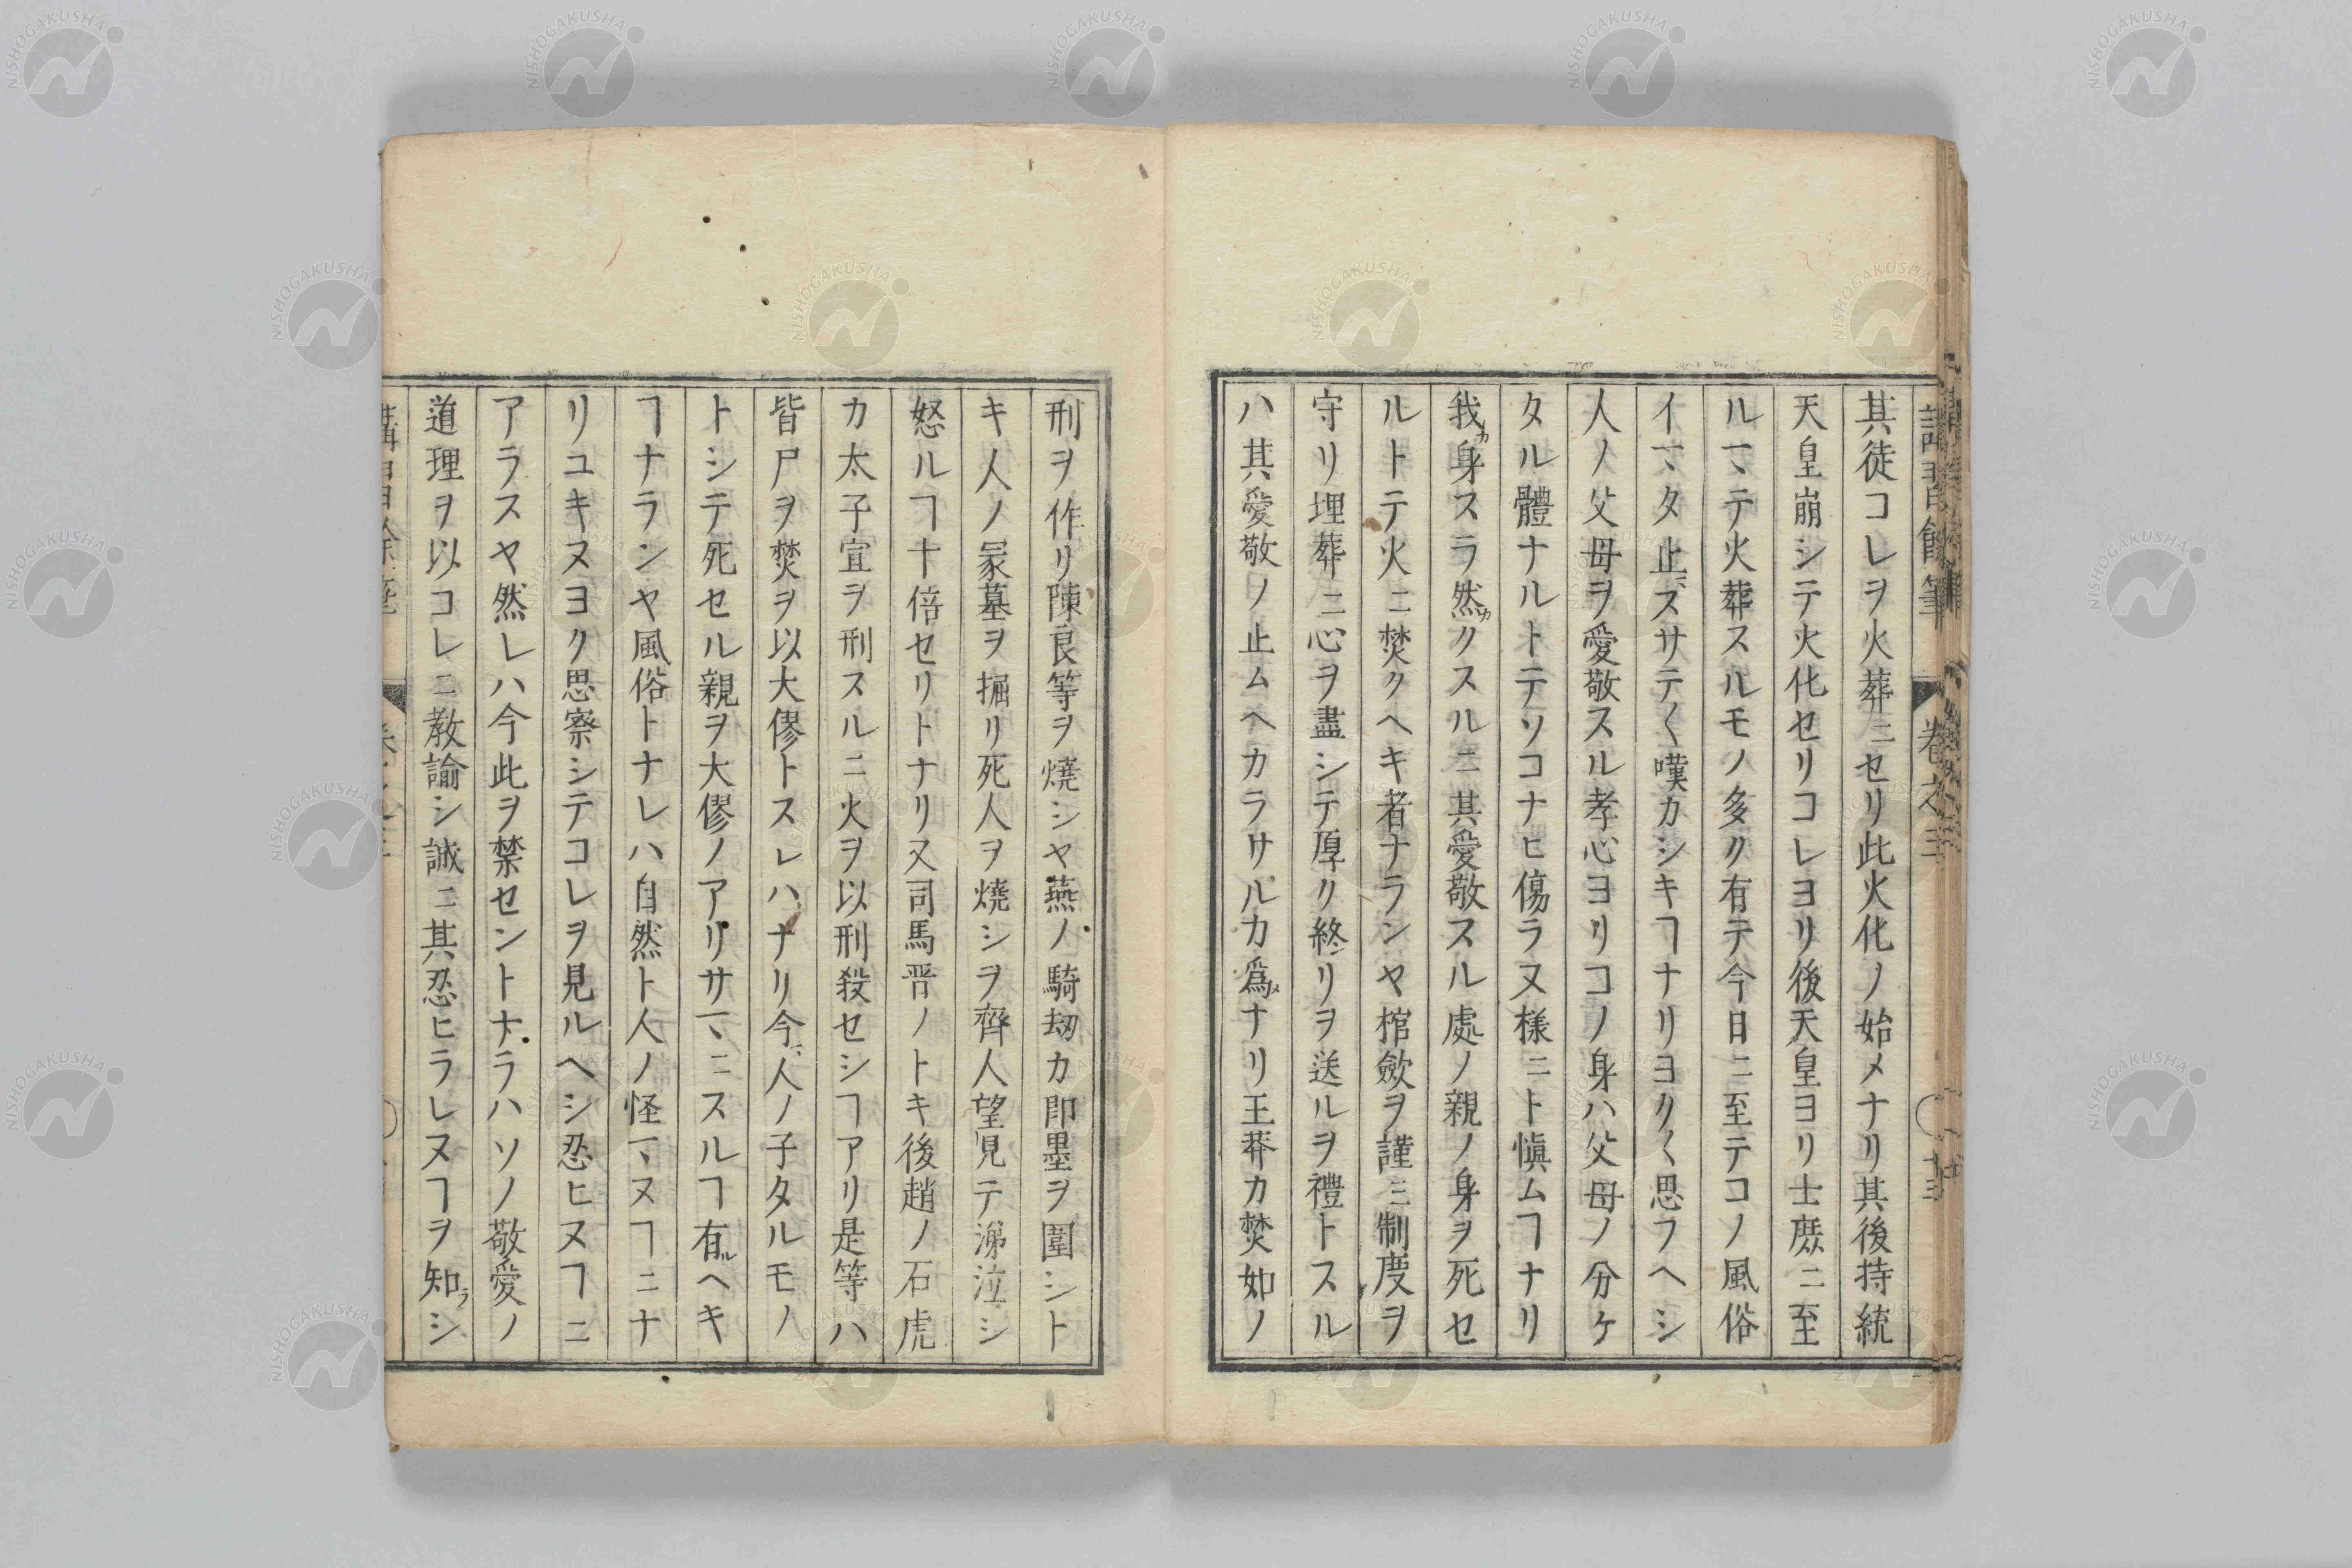 講習餘筆 卷之三
其徒コレヲ火葬ニセリ此火化ノ始メナリ其後持統
天皇崩シテ火化セリコレヨリ後天皇ヨリ士庶ニ至
ルマテ火葬スルモノ多ク有テ今日ニ至テコノ風俗
イマタ止ズサテ〱嘆カシキヿナリヨク〱思フヘシ
人ノ父母ヲ愛敬スル孝心ヨリコノ身ハ父母ノ分ケ
タル體ナルトテソコナヒ傷ラヌ様ニト愼ムヿナリ
我カ身スラ然カクスルニ其愛敬スル處ノ親ノ身ヲ死セ
ルトテ火ニ焚クヘキ者ナランヤ棺歛ヲ謹ミ制度ヲ
守リ埋葬ニ心ヲ盡シテ厚ク終リヲ送ルヲ禮トスル
ハ其愛敬ノ止ムヘカラサルカ爲メナリ王莽カ焚如ノ
刑ヲ作リ陳良等ヲ燒シヤ燕ノ騎刧カ即墨ヲ圍シト
キ人ノ冡墓ヲ掘リ死人ヲ燒シヲ齊人望見テ涕泣シ
怒ルヿ十倍セリトナリ又司馬晋ノトキ後趙ノ石虎
カ太子宣ヲ刑スルニ火ヲ以刑殺セシヿアリ是等ハ
皆尸ヲ焚ヲ以大僇トスレハナリ今人ノ子タルモノ
トシテ死セル親ヲ大僇ノアリサマニスルヿ有ルヘキ
ヿナランヤ風俗トナレハ自然ト人ノ怪マヌヿニナ
リユキヌヨク思察シテコレヲ見ルヘシ忍ヒヌヿニ
アラスヤ然レハ今此ヲ禁セントナラハソノ敬愛ノ
道理ヲ以コレニ教諭シ誠ニ其忍ヒラレヌヿヲ知ラシ
NISHOGAKUSHA